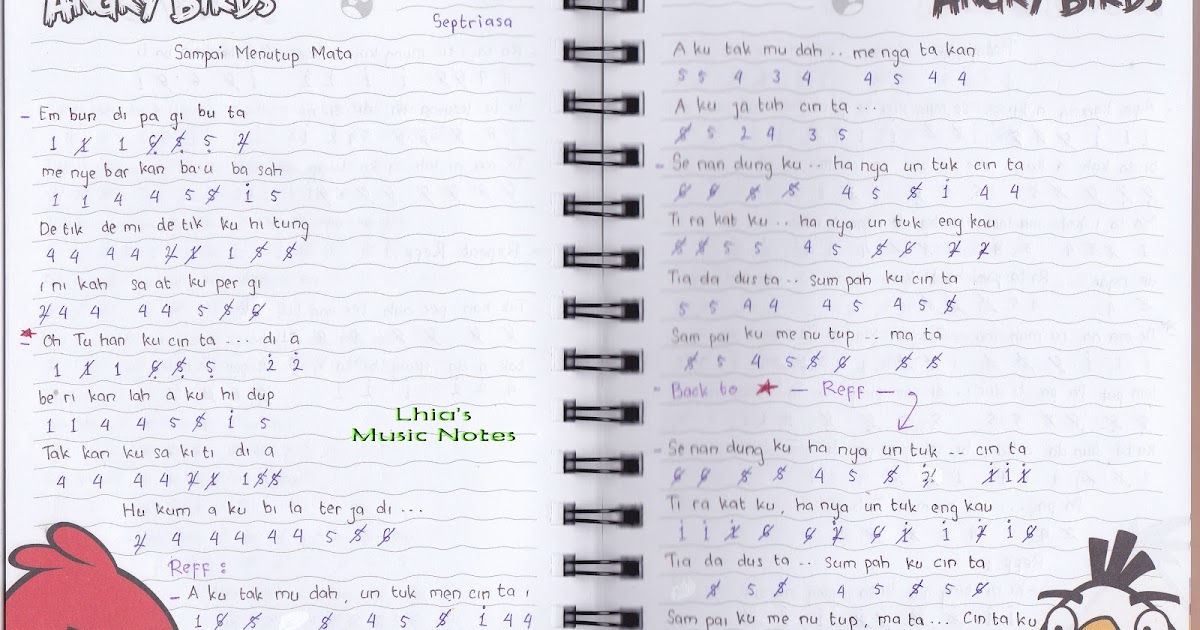 ANGRY BIRDS
Septriasa
Sampai Menutup Mata
- Em bun di pa gi bu ta
1 1̸ 1 6̸ 5̸ 5 2̸
me nye bar kan ba'u ba sah
1 1 4 4 5 5̸ 1 5
De tik de mi de tik ku hi tung
4 4 4 4 2̸ 1̸ 1 5̸ 5̸
i ni kah sa at ku per gi
2̸ 4 4 4 4 5 5̸ 6̸
- Oh Tu han ku cin ta ... di a
1 1̸ 1 6̸ 5̸ 5 2 2
be ri kan lah a ku hi dup
1 1 4 4 5 5̸ 1 5
Tak kan ku sa ki ti di a
4 4 4 4 2̸ 1̸ 1 5̸ 5̸
Hu kum a ku bi la ter ja di ...
2̸ 4 4 4 4 4 5 5̸ 6̸
Reff :
- A ku tak mu dah, un tuk men cin ta i
1 6̸ 5̸ 5̸ 4 5 5̸ 1 4 4
Lhia's
Music Notes
ANGRY BIRDS
A ku tak mu dah .. me nga ta kan
5 5 4 3 4 4 5 4 4
A ku ja tuh cin ta ...
5̸ 5 2 4 3 5
- Se nan dung ku .. ha nya un tuk cin ta
6̸ 6̸ 5̸ 5̸ 4 5 5̸ 1 4 4
Ti ra kat ku .. ha nya un tuk eng kau
5̸ 5̸ 5 5 4 5 5̸ 6̸ 2̸ 2̸
Tia da dus ta .. sum pah ku cin ta
5 5 4 4 4 5 4 5 5̸
Sam pai ku me nu tup .. ma ta
5̸ 5 4 5 5̸ 6̸ 5̸ 5̸
- Back to ★ — Reff —
- Se nan dung ku ha nya un tuk .. cin ta
6̸ 6̸ 5̸ 5̸ 4 5 5̸ 2̸ 1̸ 1 1̸
Ti ra kat ku, ha nya un tuk eng kau
1 1 1̸ 6̸ 6̸ 2̸ 6̸ 1̸ 1 2̸ 1 6̸
Tia da dus ta .. sum pah ku cin ta
5̸ 5 5̸ 4 5 5̸ 5 6̸
Sam pai ku me nu tup, ma ta ... Cin ta ku